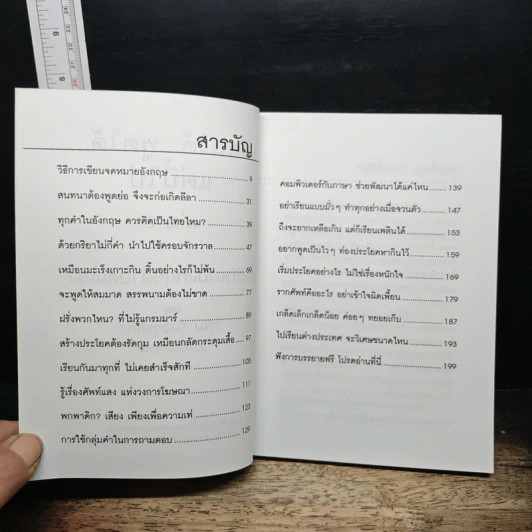 สารบัญ
วิธีการเขียนจดหมายอังกฤษ 9
สนทนาต้องพูดย่อ จึงจะก่อเกิดลีลา 31
ทุกคำในอังกฤษ ควรคิดเป็นไทยไหม? 39
ด้วยกริยาไม่กี่คำ นำไปใช้ครอบจักรวาล 47
เหมือนมะเร็งเกาะกิน ดิ้นอย่างไรก็ไม่พ้น 69
จะพูดให้สมมาด สรรพนามต้องไม่ขาด 77
ฝรั่งพวกไหน? ที่ไม่รู้แกรมมาร์ 89
สร้างประโยคต้องรัดกุม เหมือนกลัดกระดุมเสื้อ 97
เรียนกันมาทุกที่ ไม่เคยสำเร็จสักที 105
รู้เรื่องศัพท์แสง แห่งวงการโฆษณา 111
พกพาดิก? เสียง เพียงเพื่อความเท่ 123
การใช้กลุ่มคำในการถามตอบ 129
คอมพิวเตอร์กับภาษา ช่วยพัฒนาได้แค่ไหน 139
อย่าเรียนแบบมั่วๆ ทำทุกอย่างเมื่อจวนตัว 147
ถึงจะยากเหลือเกิน แต่ก็เรียนเพลินได้ 153
อยากพูดเป็นไวๆ ท่องประโยคหากินไว้ 159
เริ่มประโยคอย่างไร ไม่ใช่เรื่องหนักใจ 169
รากศัพท์คืออะไร อย่าเข้าใจผิดเพี้ยน 179
เกล็ดเล็กเกล็ดน้อย ค่อยๆ ทยอยเก็บ 187
ไปเรียนต่างประเทศ จะวิเศษขนาดไหน 193
ฟังการบรรยายฟรี โปรดอ่านที่นี่ 199